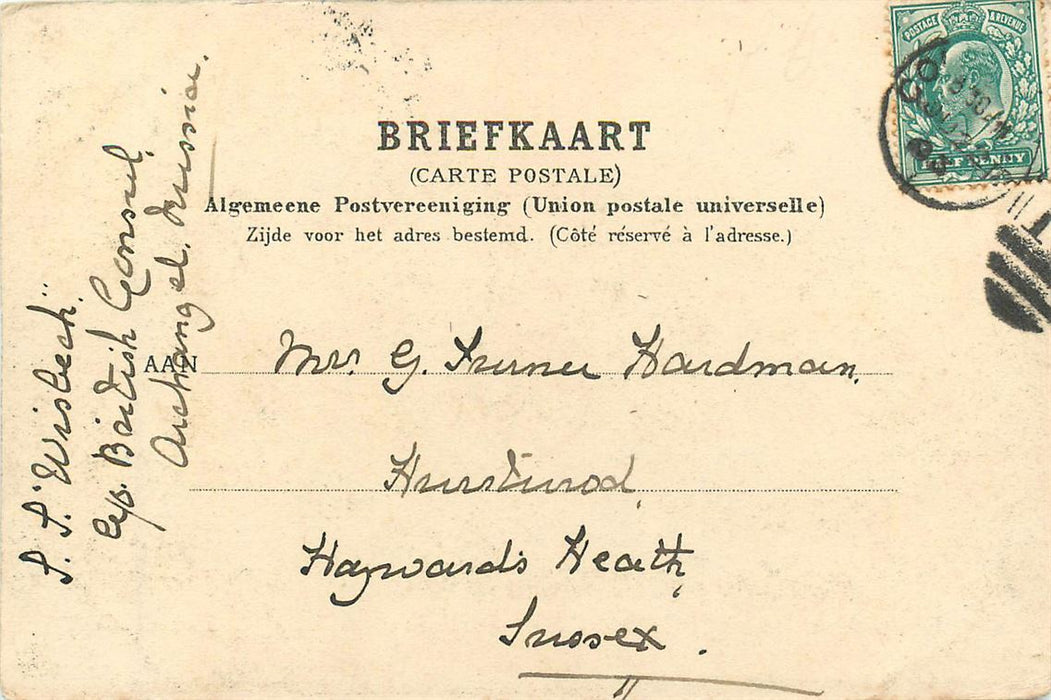 POSTAGE & REVENUE
HALFPENNY
BRIEFKAART
(CARTE POSTALE)
Algemeene Postvereeniging (Union postale universelle)
Zijde voor het adres bestemd. (Côté réservé à l'adresse.)
AAN Mrs. G. Turner Hardman.
Hurstwood,
Haywards Heath,
Sussex.
S. S. "Wisbech".
c/o. British Consul,
Archangel, Russia.